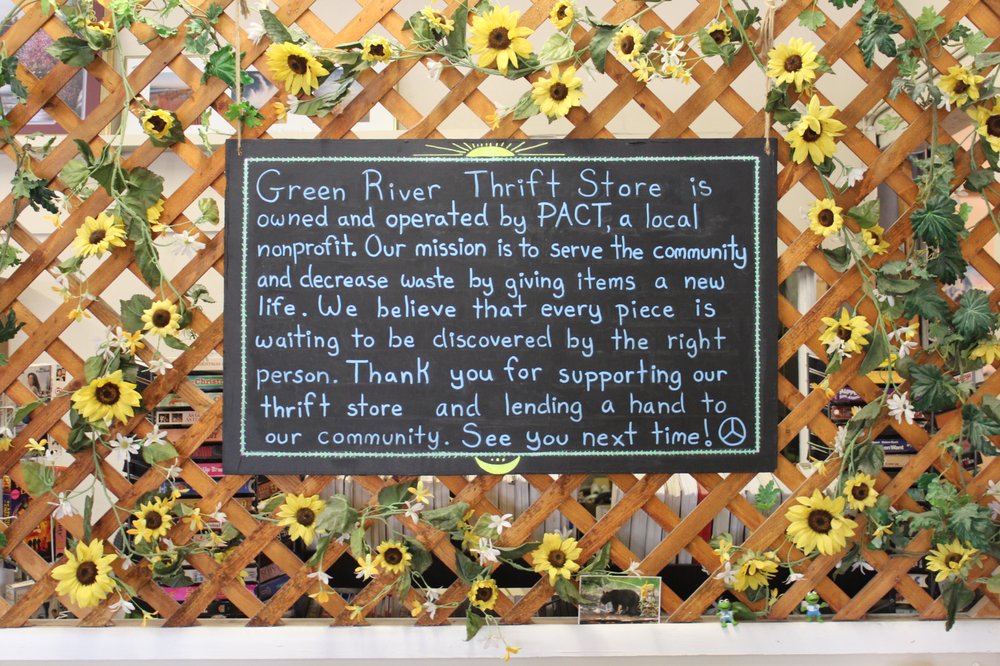 Green River Thrift Store is
owned and operated by PACT, a local
nonprofit. Our mission is to serve the community
and decrease waste by giving items a new
life. We believe that every piece is
waiting to be discovered by the right
person. Thank you for supporting our
thrift store and lending a hand to
our community. See you next time!